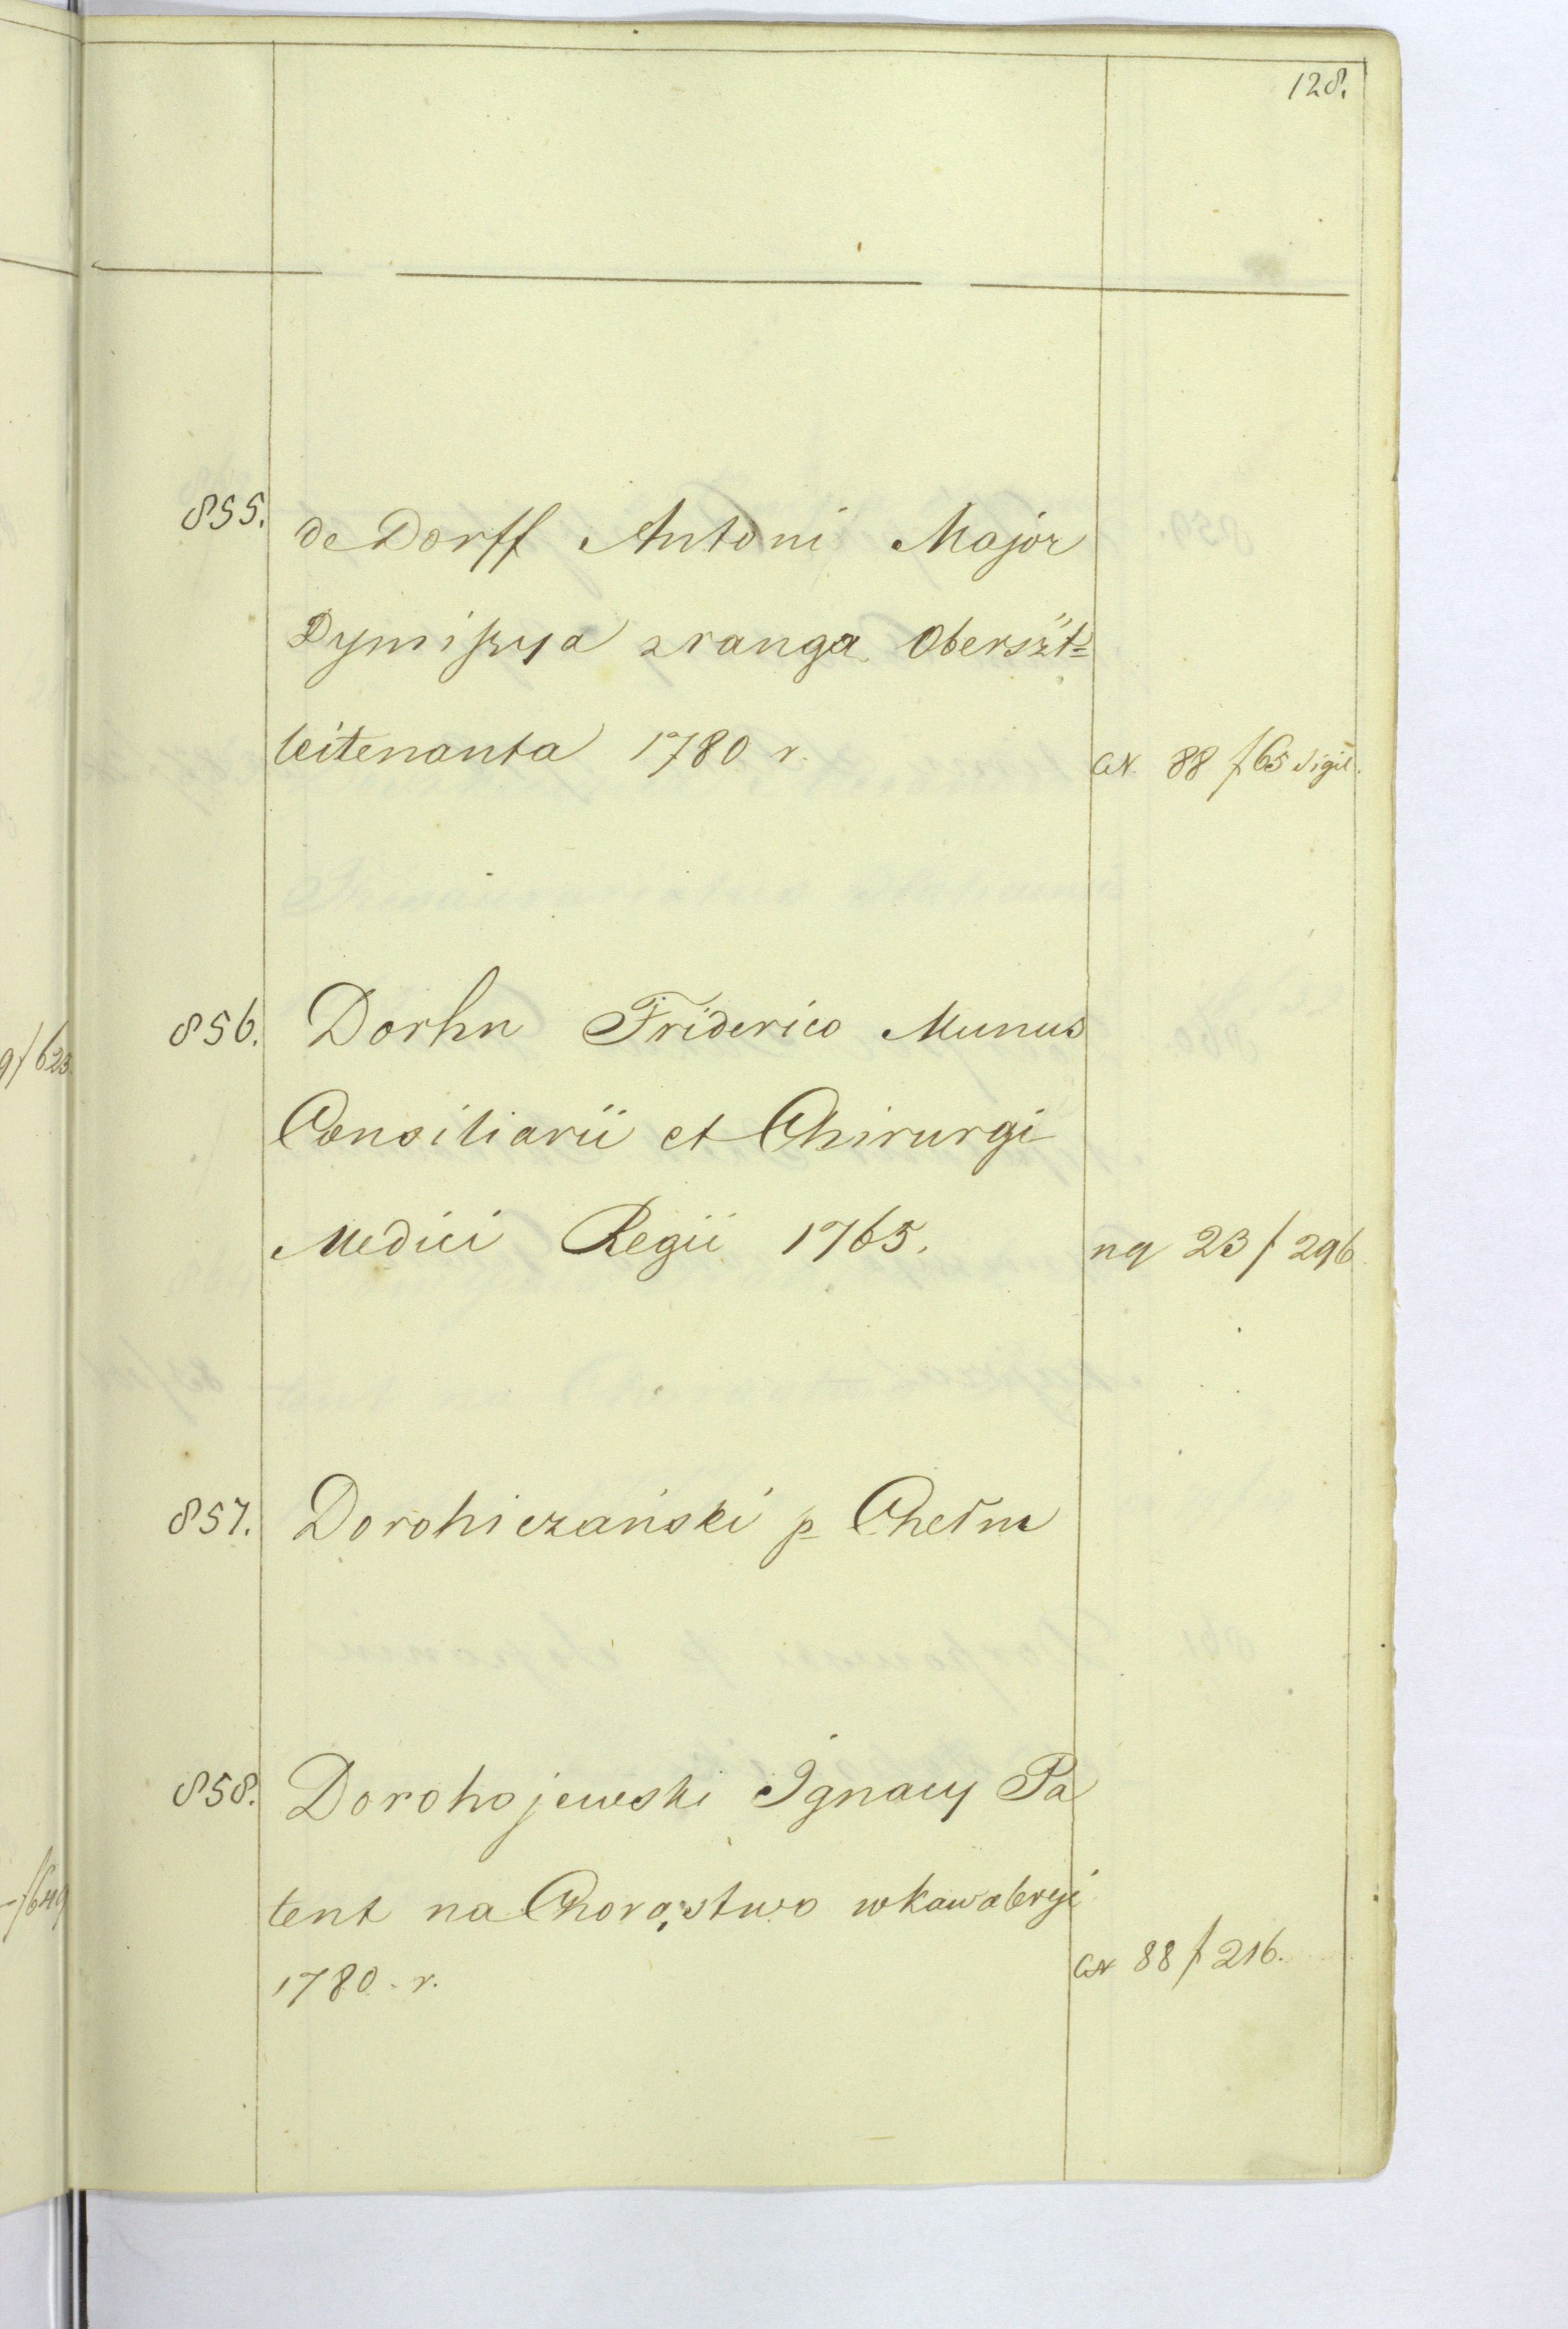 128.
855. de Dorff Antoni Major
Dymißya z ranga Obersżt=
leitenanta 1780 r. CN. 88 f 65 Sigil.
856. Dorhn Friderico Munus
Consiliarii et Chirurgi
Medici Regii 1765. nq 23 f 296
857. Dorohiczański p Chełm
858. Dorohojewski Ignacy Pa
tent na Chorąstwo w Kawaleryi
1780. r. CN 88 f 216.